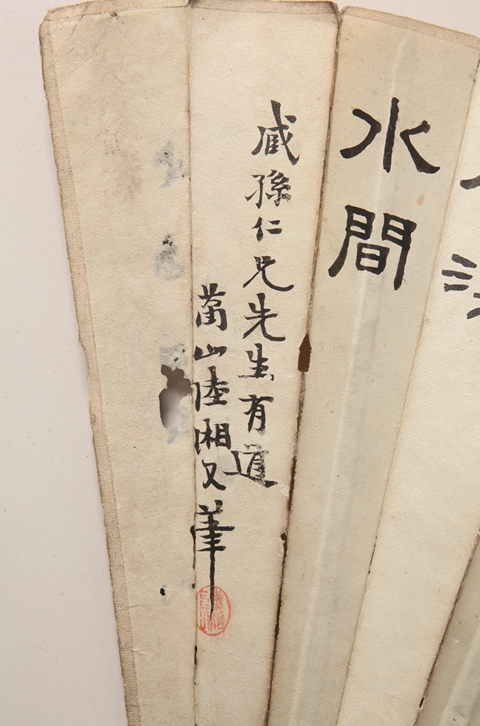 水間
臧孫仁兄先生有道
山陸湘又筆